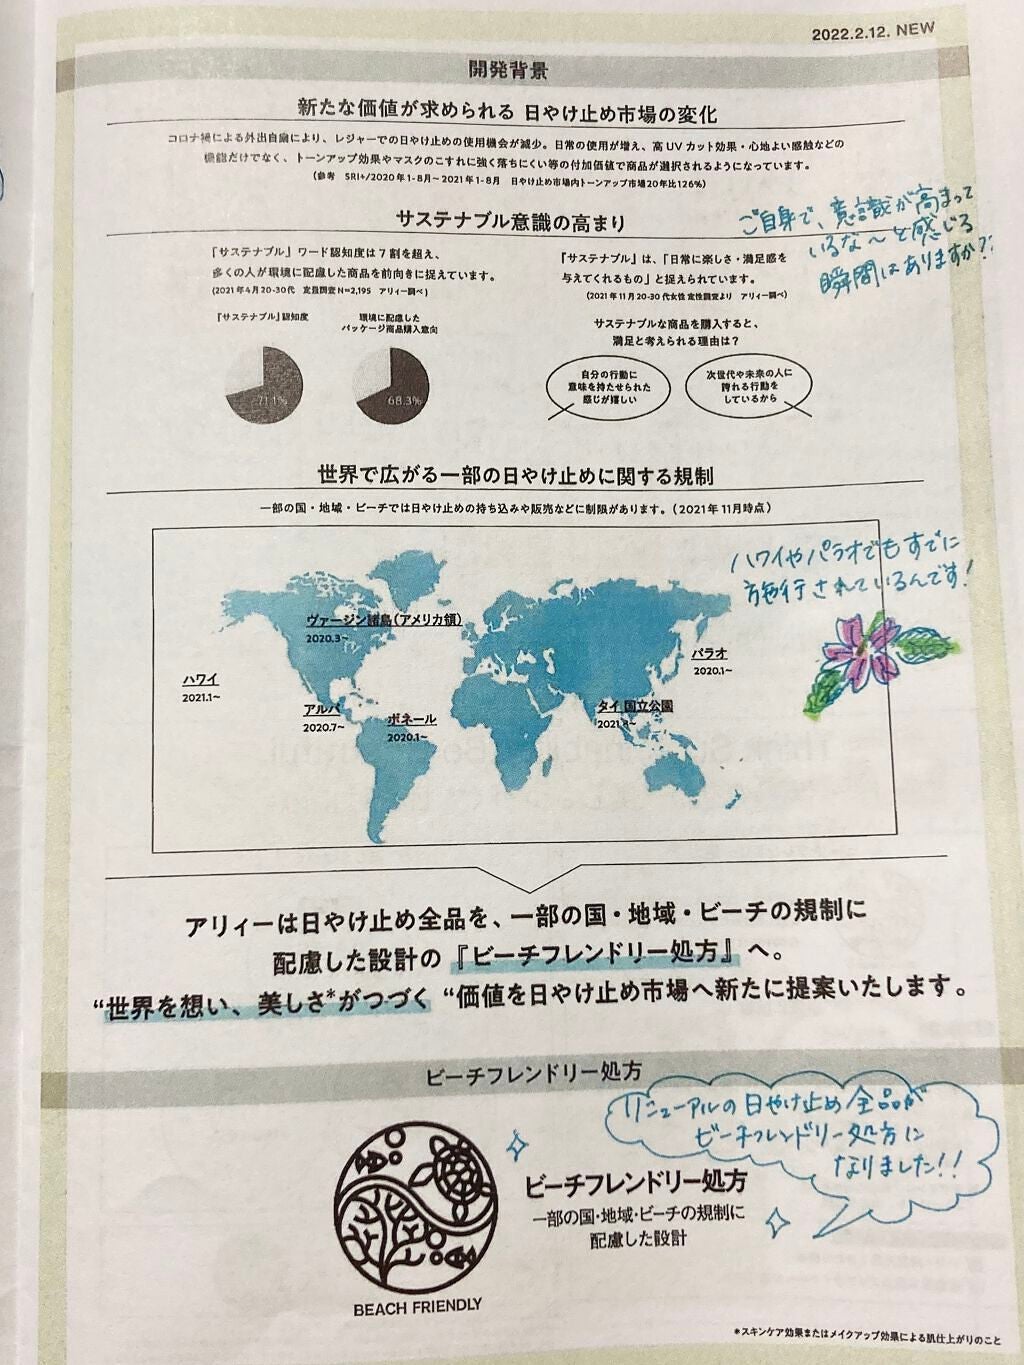 2022.2.12. NEW
開発背景
新たな価値が求められる 日やけ止め市場の変化
コロナ禍による外出自粛により、レジャーでの日やけ止めの使用機会が減少。日常の使用が増え、高UVカット効果・心地よい感触などの
機能だけでなく、トーンアップ効果やマスクのこすれに強く落ちにくい等の付加価値で商品が選択されるようになっています。
(参考 SRI+/2020年1-8月～2021年1-8月 日やけ止め市場内トーンアップ市場20年比126%)
サステナブル意識の高まり
ご自身で、意識が高まって
いるな～と感じる
瞬間はありますか?!
『サステナブル』ワード認知度は7割を超え、
多くの人が環境に配慮した商品を前向きに捉えています。
(2021年4月20-30代 定量調査N=2,195 アリィー調べ)
『サステナブル』認知度
環境に配慮した
パッケージ商品購入意向
71.1%
68.3%
『サステナブル』は、「日常に楽しさ・満足感を
与えてくれるもの」と捉えられています。
(2021年11月20-30代女性 定性調査より アリィー調べ)
サステナブルな商品を購入すると、
満足と考えられる理由は?
自分の行動に
意味を持たせられた
感じが嬉しい
次世代や未来の人に
誇れる行動を
しているから
世界で広がる一部の日やけ止めに関する規制
一部の国・地域・ビーチでは日やけ止めの持ち込みや販売などに制限があります。(2021年11月時点)
ハワイやパラオでもすでに
施行されているんです!
ヴァージン諸島(アメリカ領)
2020.3~
ハワイ
2021.1~
パラオ
2020.1~
アルバ
2020.7~
ボネール
2020.1~
タイ 国立公園
2021.8~
アリィーは日やけ止め全品を、一部の国・地域・ビーチの規制に
配慮した設計の『ビーチフレンドリー処方』へ。
“世界を想い、美しさ*がつづく “価値を日やけ止め市場へ新たに提案いたします。
ビーチフレンドリー処方
リニューアルの日やけ止め全品が
ビーチフレンドリー処方に
なりました!!
ビーチフレンドリー処方
一部の国・地域・ビーチの規制に
配慮した設計
BEACH FRIENDLY
*スキンケア効果またはメイクアップ効果による肌仕上がりのこと